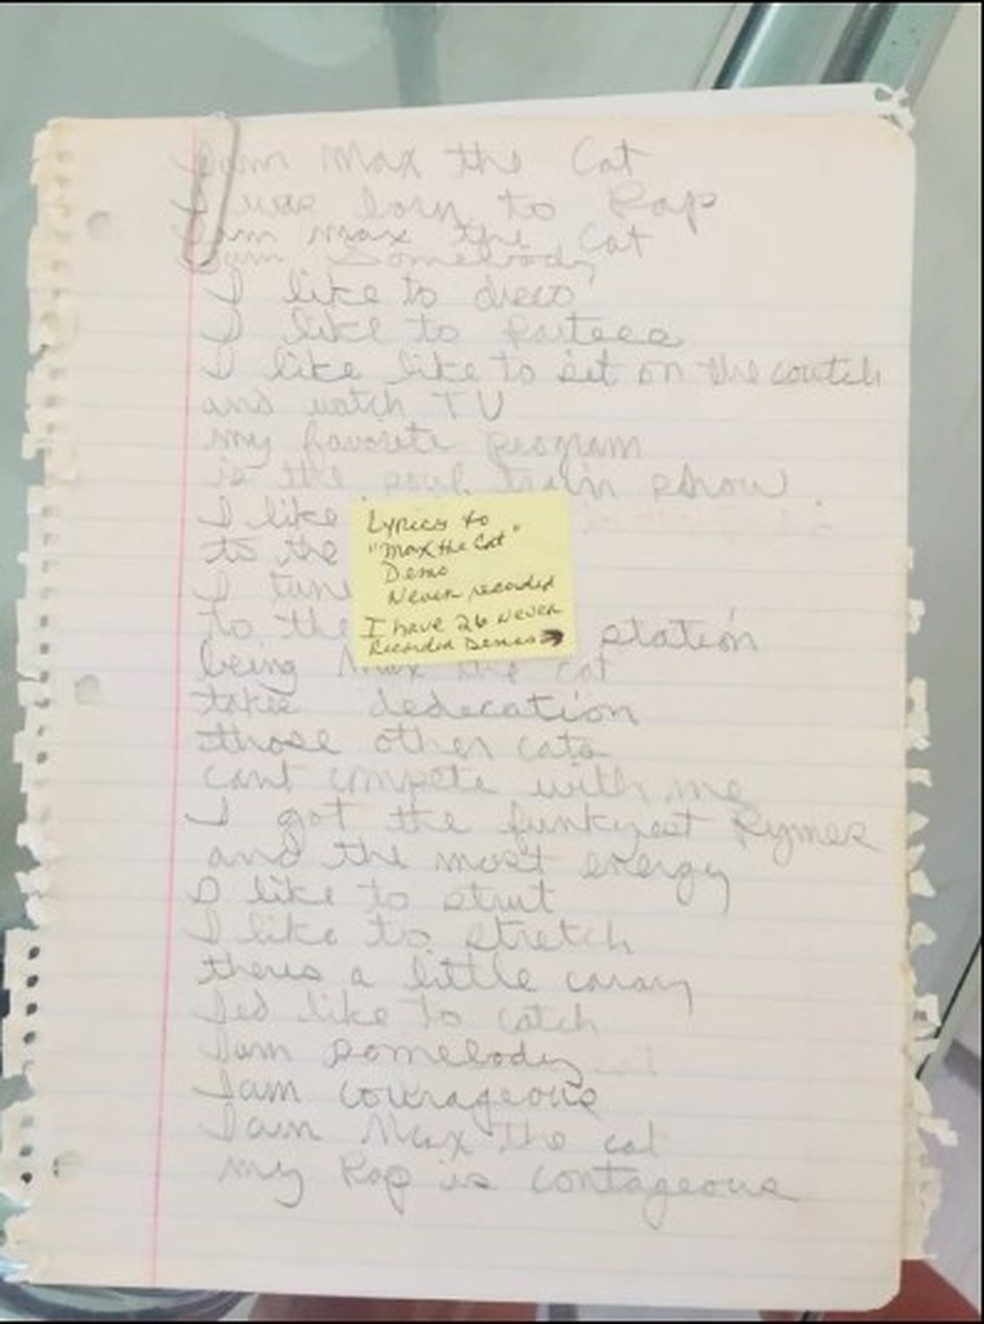 I am Max the Cat
I was born to Rap
I am max the Cat
I am Somebody
I like to disco
I like to Partees
I like like to sit on the coutch
and watch TV
my favorite program
is the soul train show
I like
to the
I tune
to the station
being Max the cat
takes dedecation
those other cats
cant compete with me
I got the funkyest Rymes
and the most energy
I like to strut
I like to stretch
theres a little canary
Ied like to catch
I am somebody
I am courageous
I am Max the cat
my Rap is contageous
Lyrics to
"Max the Cat"
Demo
Never recorded
I have 26 never
Recorded Demos